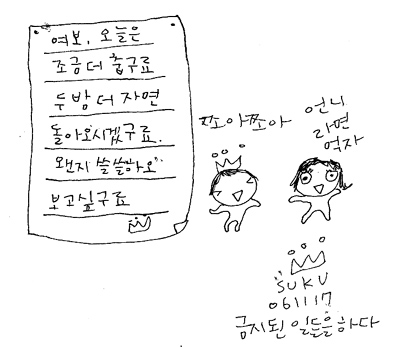 여보, 오늘은
조금 더 춥구료
두 밤 더 자면
돌아오시겠구료.
왠지 쓸쓸하오
보고싶구료
쪼아쪼아
언니
라면
먹자
SUKU
061117
금지된 일들을 하다